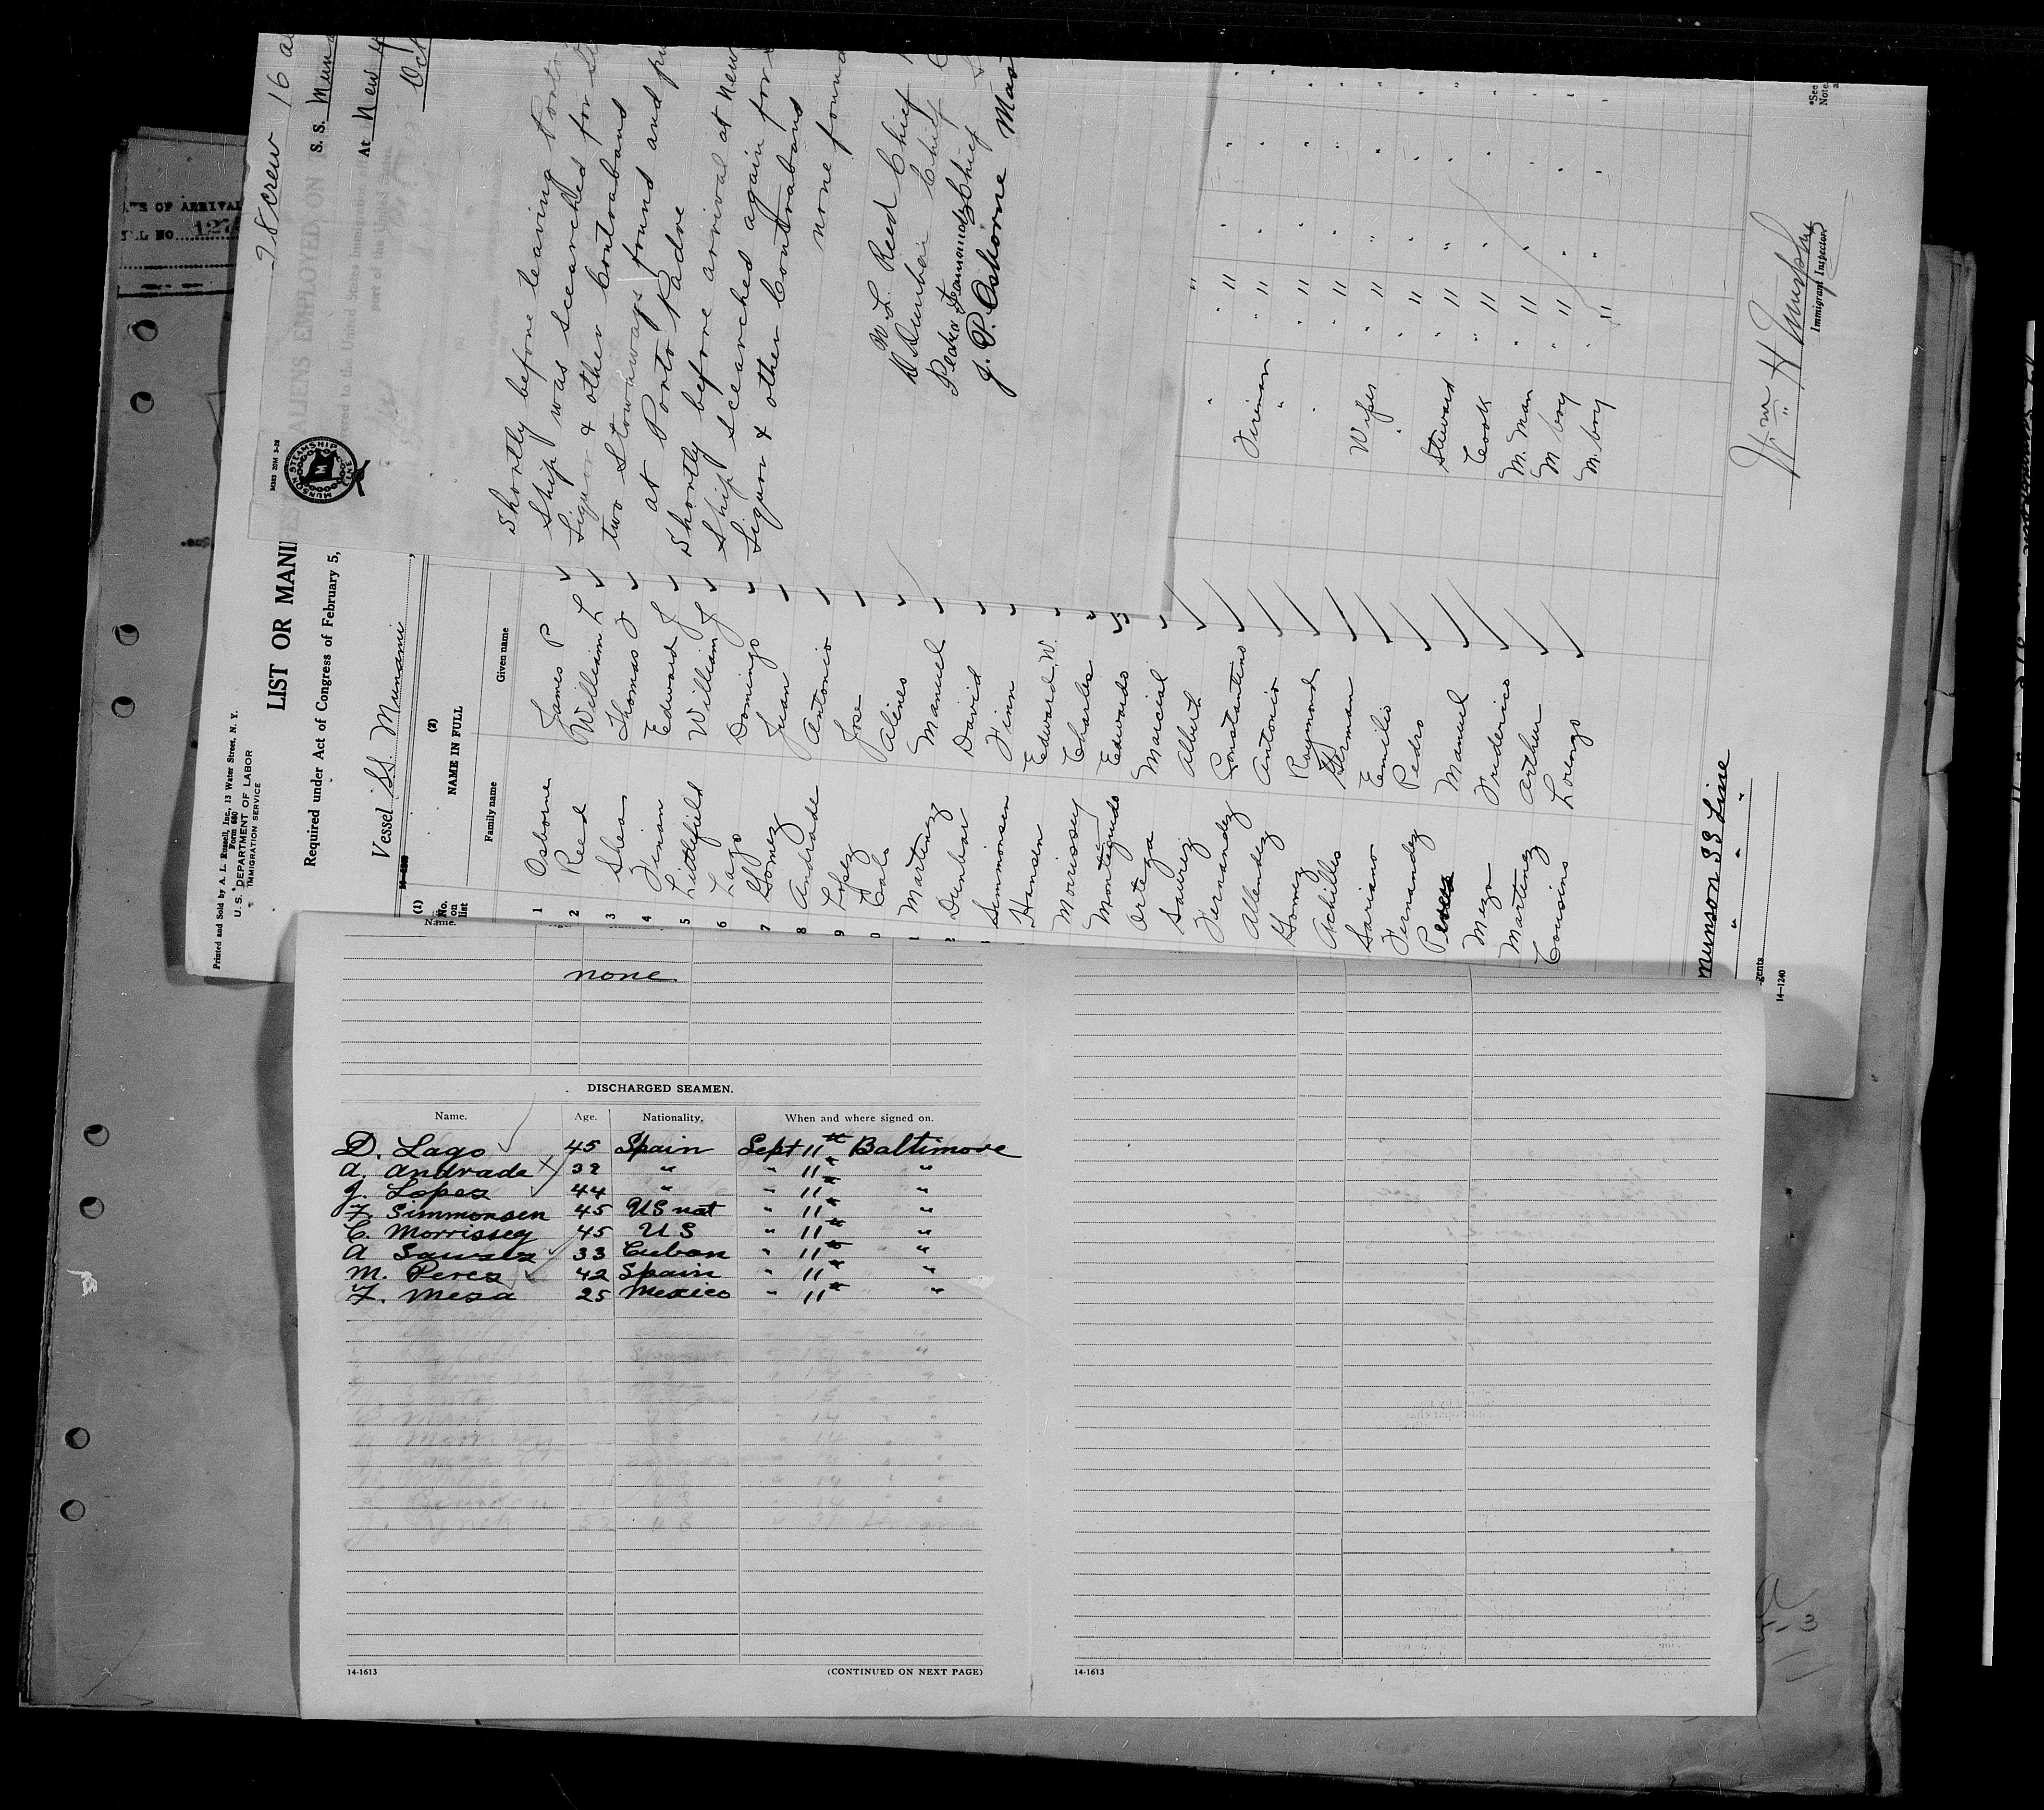 28 crew 16 al
S. S. Muna
At New Y
Oct
M363 20M 3-28
MUNSON STEAMSHIP LINE
M
Shortly before leaving Porto
Ship was scearched for
Liquor & other Contrabands
two Stowaways found and pu
at Porto Padre
Shortly before arrival at New
Ship scearched again for
Liquor & other Contrabands
none found
W. L. Reed Chief
D Dunbar Chief
Pedro Fernandez Chief
J. P. Osborne Mas
Printed and Sold by A. L. Russell, Inc., 13 Water Street, N. Y.
Form 680
U. S. DEPARTMENT OF LABOR
IMMIGRATION SERVICE
LIST OR MANI
ALIENS EMPLOYED ON
Required under Act of Congress of February 5,
Vessel SS. Munami
(1) (2)
No. on list NAME IN FULL
Family name Given name
1 Osborne James P
2 Reed William L
3 Shea Thomas J
4 Finan Edward J
5 Littlefield William J
6 Lago Domingo
7 Gomez Juan
8 Andrade Antonio
9 Lopez Jose
0 Calo
1 Martinez Manuel
2 Dunbar David
Simmonsen Finn
Hansen Edward W.
Morrissey Charles
Montegudo Edwardo
Ortega Marcial
Saurez Albert
Fernandez Constantino
Allendez Antonio
Gomez Raymond
Achilles German
Sariano Emilio
Fernandez Pedro
Perez Manuel
Meza Frederico
Martinez Arthur
Cousins Lorenzo
Fireman "
"
Wiper "
"
Steward "
Cook "
M. Man "
M boy "
M. boy "
Munson SS Line
" " "
gents
14—1240
Wm H Murphy
Immigrant Inspector
*See
Note
OF ARRIVAL
NO. 127
Name.
none
DISCHARGED SEAMEN.
Name. Age. Nationality. When and where signed on.
D. Lago 45 Spain Sept 11th Baltimore
A. Andrade 39 " " 11" "
J. Lopez 44 " " 11" "
F. Simmonsen 45 US nat " 11" "
C. Morrissey 45 U S " 11th "
A Saurez 33 Cuban " 11th "
M. Perez 42 Spain " 11" "
F. Mesa 25 Mexico " 11" "
14-1613 (CONTINUED ON NEXT PAGE)
14-1613